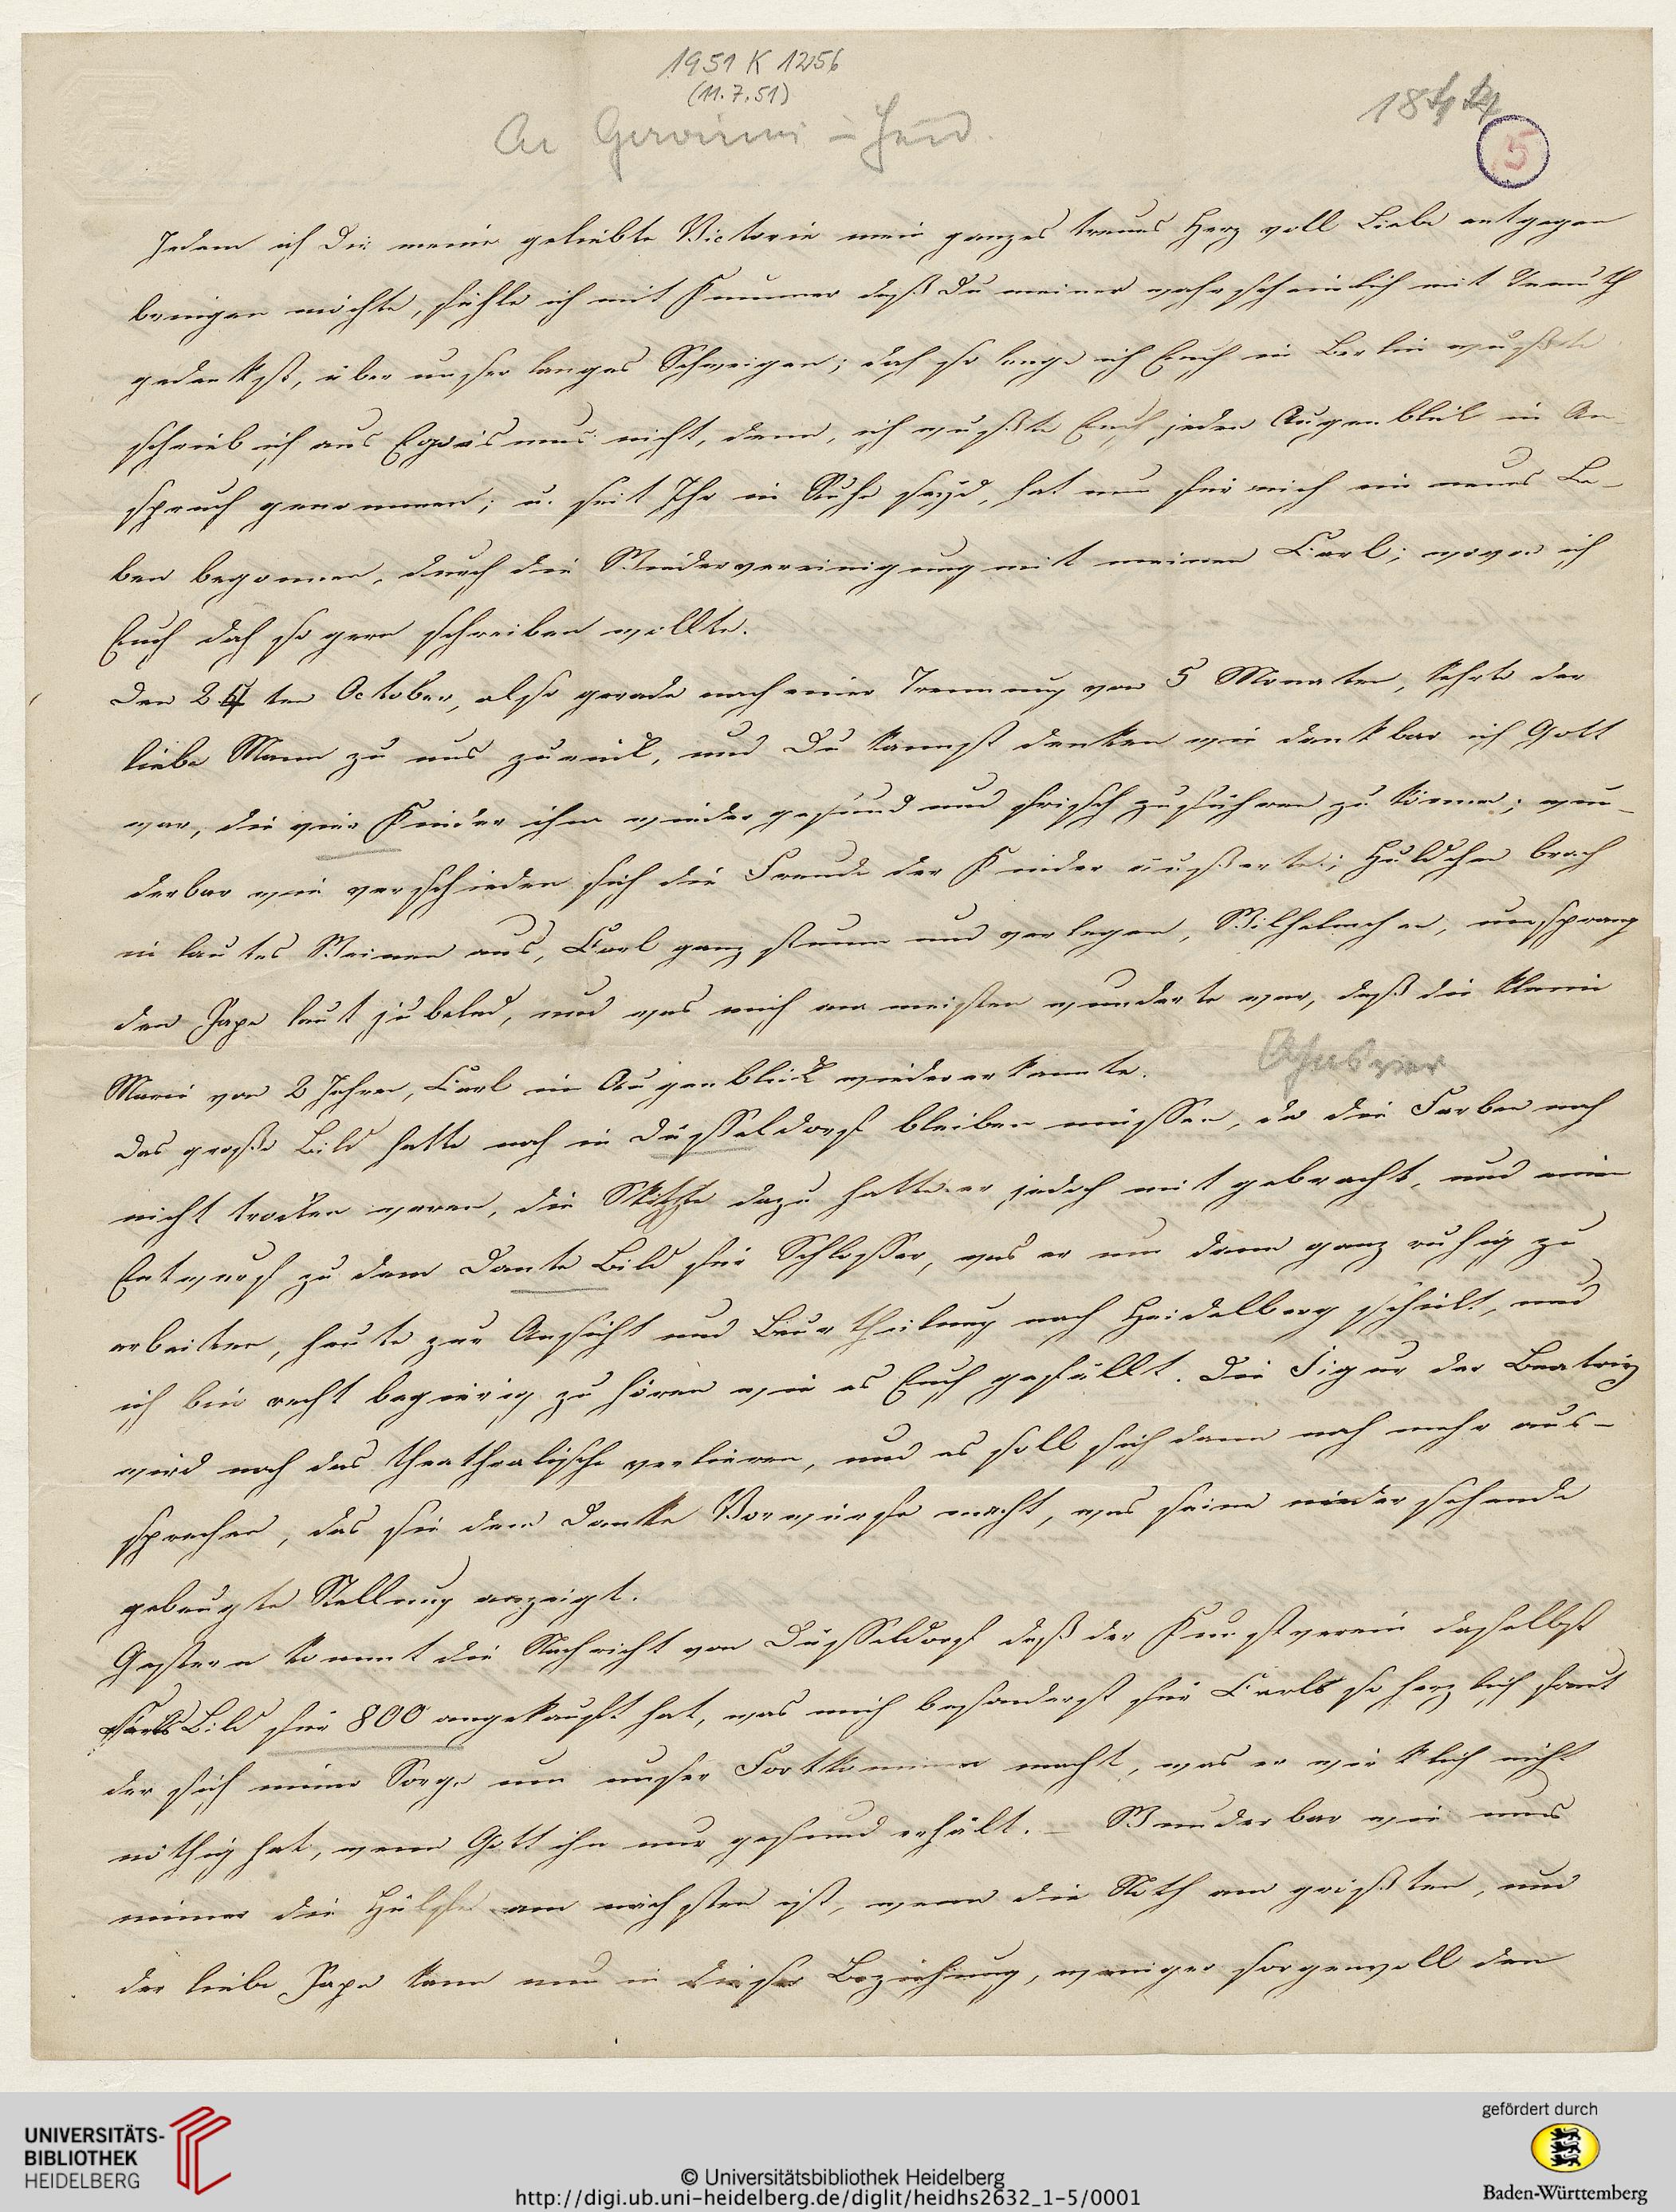 1951 K 1256
(11.7.51)
18
An Gervinus =
5
Indem ich Dir meine geliebte Victorie mein ganzes treues Herz voll Liebe entgegen
bringen möchte, fühle ich mit Kummer daß Du meiner wahrscheinlich mit
gedenkst, über unser langes Schweigen; doch so lange ich Euch in Berlin wußte
schrieb ich aus Egoismus nicht, denn, ich wußte Euch jeden Augenblick in An-
spruch genommen; u. seit Ihr in Ruhe seyd, hat nun für mich ein neues Le-
ben begonnen, durch die Wiedervereinigung mit meinem Carl; wovon ich
Euch doch so gern schreiben wollte.
Den 24 ten October, also gerade nach einer Trennung von 5 Monaten, kehrte der
liebe Mann zu uns zurück, und Du kannst denken wie dankbar ich Gott
war, die vier Kinder ihm wieder gesund und frisch zuführen zu können; wun-
derbar wie verschieden sich die Freude der Kinder äußerte; Huldchen brach
in lautes Weinen aus, Carl ganz stumm und verlegen, Wilhelmchen, umsprang
den Papa laut jubelnd, und was mich am meisten wunderte war, daß die kleine
Marie von 2 Jahren, Carl im Augenblick wiedererkannte.
Ahasver
Das große Bild hatte noch in Düsseldorf bleiben müssen, da die Farben noch
nicht trocken waren, die Skitze dazu hatte er jedoch mit gebracht, und einen
Entwurf zu dem Dante Bild für Schlosser, was er nun dann ganz ruhig zu
arbeiten, heute zur Ansicht und Beurtheilung nach Heidelberg schickt, und
ich bin recht begierig zu hören wie es Euch gefällt. Die Figur der Beatrix
wird noch das theatralische verlieren, und es soll sich dann noch mehr aus-
sprechen, das sie dem Dante Vorwürfe macht, was seine niedersehende
gebeugte Stellung anzeigt.
Gestern kommt die Nachricht von Düsseldorf daß der Kunstverein daselbst
Carls Bild für 800 angekauft hat, was mich besonderst für Carl so herzlich freut
der sich immer Sorge um unser Fortkommen macht, was er wirklich nicht
nöthig hat, wenn Gott ihn nur gesund erhält. – Wunderbar wie uns
immer die Hülfe am nächsten ist, wenn die Noth am größten, und
der liebe Papa kann nun in dieser Beziehung, weniger sorgenvoll den
UNIVERSITÄTS-
BIBLIOTHEK
HEIDELBERG
© Universitätsbibliothek Heidelberg
http://digi.ub.uni-heidelberg.de/diglit/heidhs2632_1-5/0001
gefördert durch
Baden-Württemberg